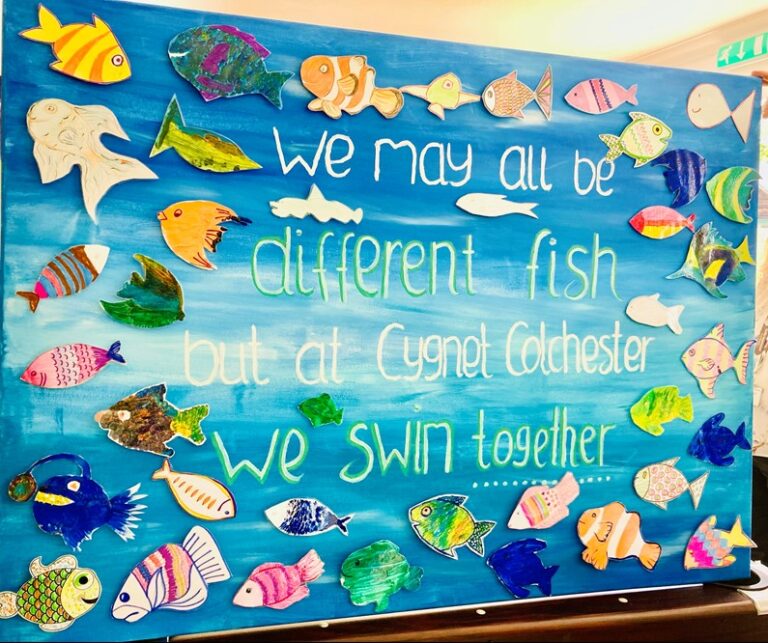 We may all be
different fish
but at Cygnet Colchester
we swim together